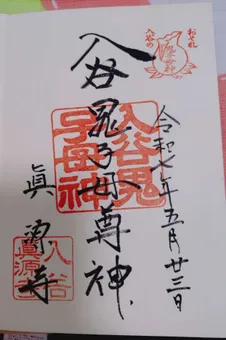 おそれ
入谷の
令和七年五月廿三日
入谷鬼子母尊神
入谷鬼
子母神
眞源寺
入谷
眞源寺